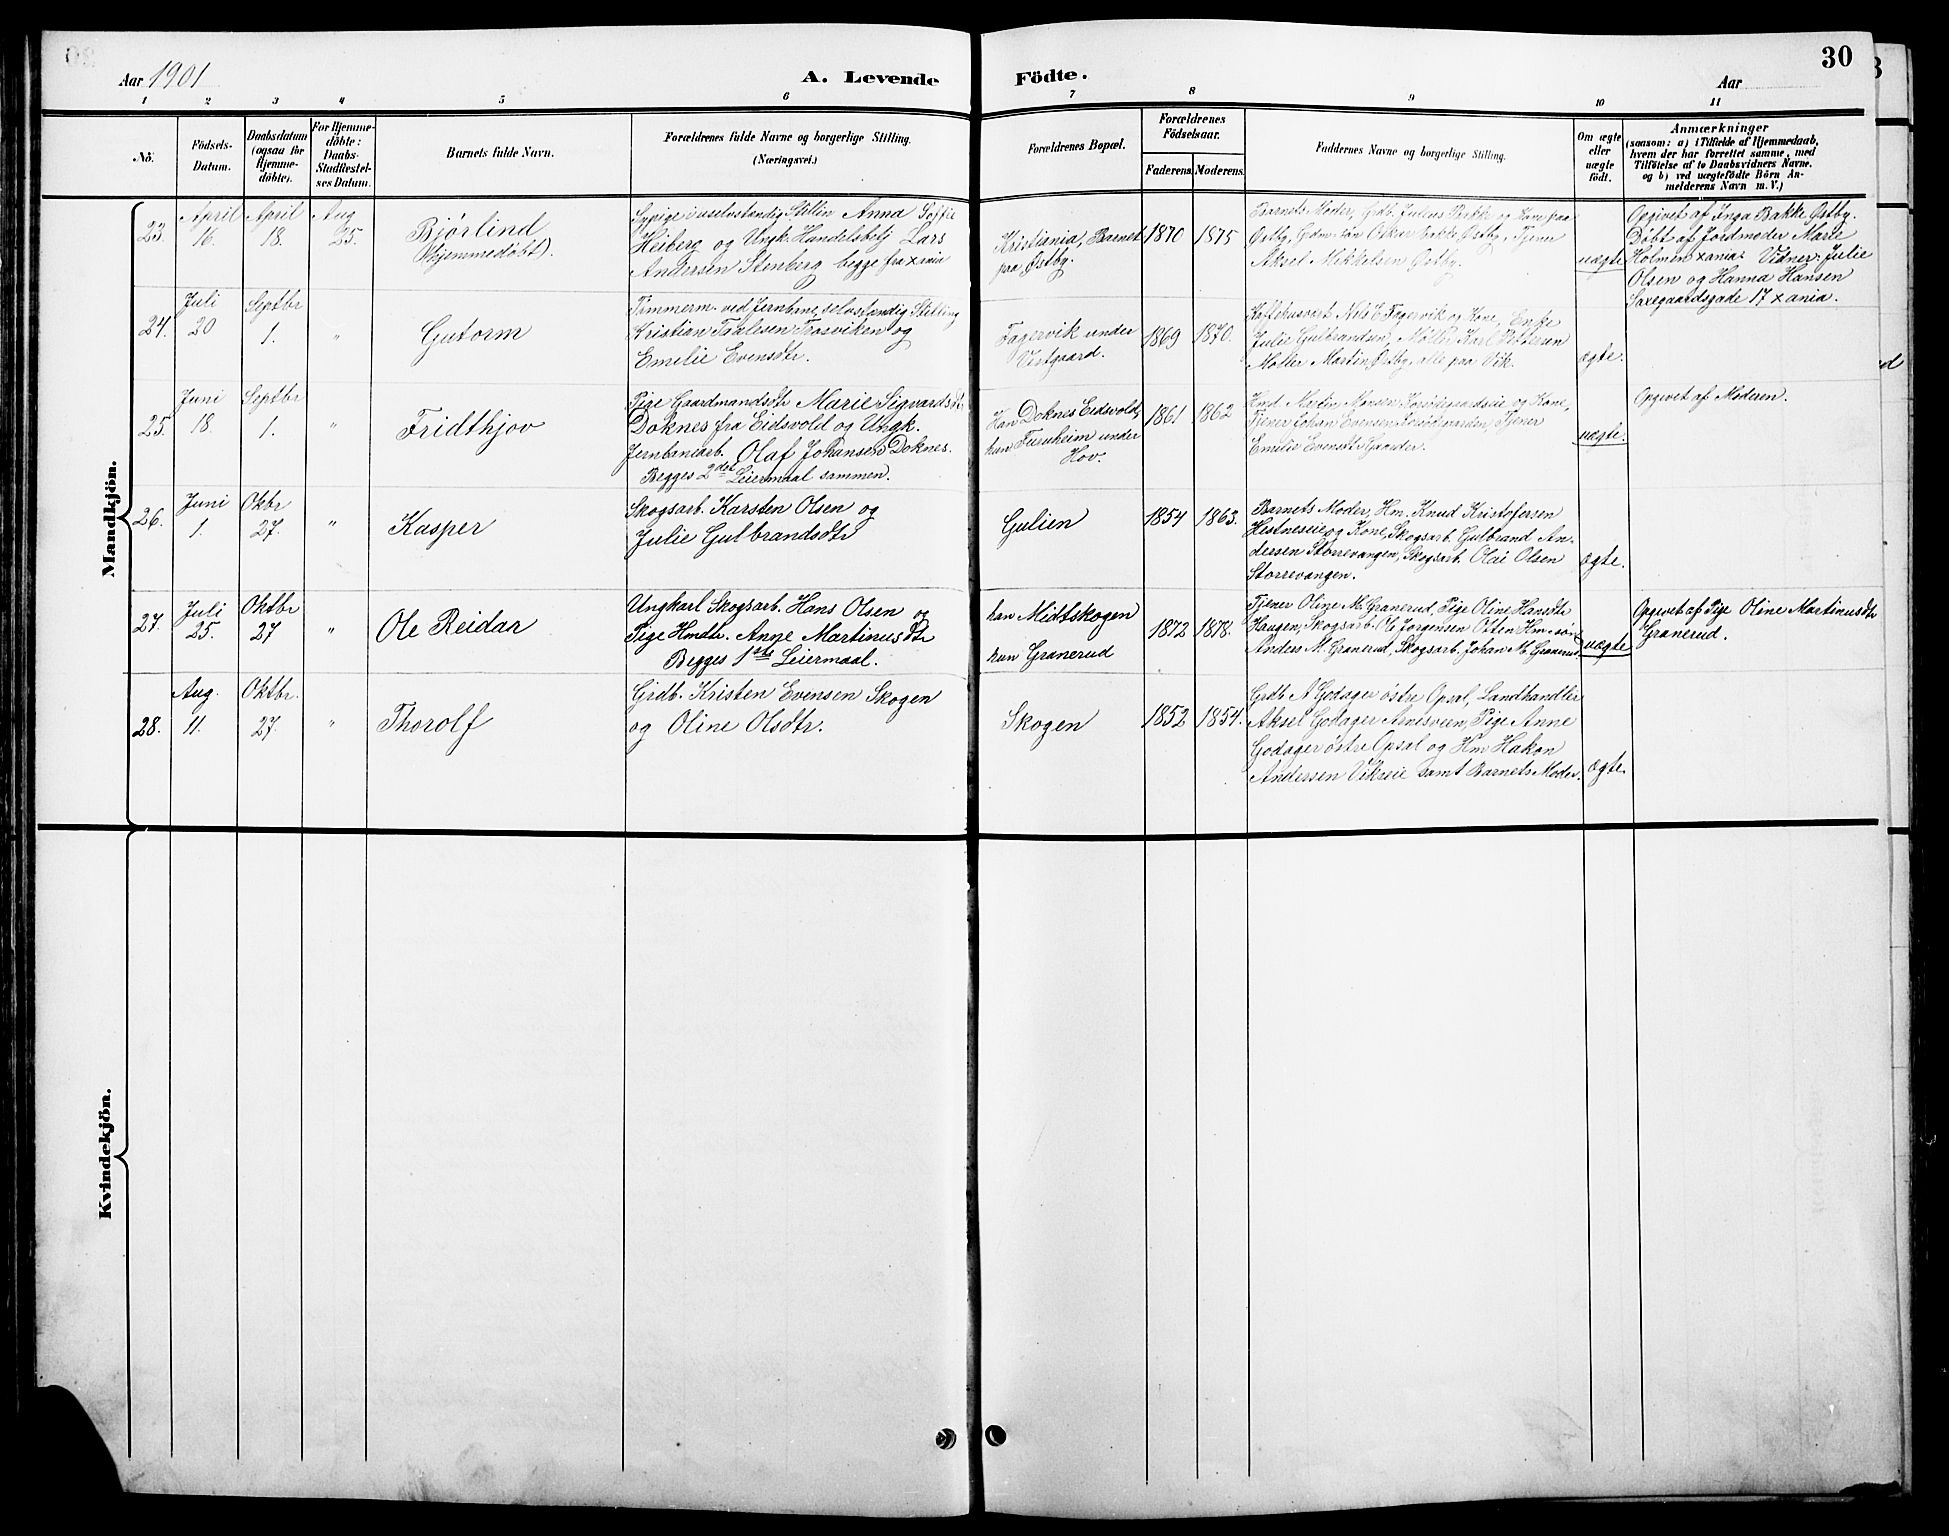 30
Aar 1901
A. Levende Födte.
Aar
1 2 3 4 5 6 7 8 9 10 11
No.
Födsels-
Datum.
Daabsdatum
(ogsaa for
Hjemme-
döbte).
For Hjemme-
döbte:
Daabs-
Stadfæstel-
ses Datum.
Barnets fulde Navn.
Forældrenes fulde Navne og borgerlige Stilling.
(Næringsvei.)
Forældrenes Bopæl.
Forældrenes
Födselsaar.
Faderens. Moderens.
Faddernes Navne og borgerlige Stilling.
Om ægte
eller
uægte
födt.
Anmærkninger
(saasom: a) i Tilfælde af Hjemmedaab,
hvem der har forrettet samme, med
Tilföielse af to Daabsvidners Navne.
og b) ved uægtefödte Börn An-
melderens Navn m. V.)
Mandkjön.
23.
April
16.
April
18.
Aug
25.
Bjørlind
(hjemmedøbt).
Sypige i uselvstændig Stillin Anna Soffie
Heiberg og Ungk. Handelsbetj Lars
Andersen Stenberg begge fra Xania
Kristiania, Barnet
paa Østby.
1870
1875
Barnets Moder, Grdb. Julius Bakke og Kone paa
Østby, Gdm. søn Oskar Bakke Østby, Tjener
Aksel Mikkelsen Østby.
uægte
Opgivet af Inga Bakke Østby.
Døbt af Jordmoder Marie
Holmen Xania. Vidner. Julie
Olsen og Hanna Hansen
Saxegaardsgade 17 Xania.
24.
Juli
20
Septbr
1.
"
Gutorm
Tømmerm. ved Jernbane, selvstændig Stilling
Kristian Taalesen Trosviken og
Emelie Evensdtr.
Fagervik under
Vestgaard.
1869
1870.
Kaffehusvært Nils E. Fagervik og Kone, Enke
Julie Gulbrandsen, Møller Karl Pettersen
Møller Martin Østby, alle paa Vik.
ægte.
25.
Juni
18.
Septbr
1.
"
Fridthjov
Pige Gaardmandsdtr Marie Sigvardsdtr
Doknes fra Eidsvold og Ungk.
Jernbanearb. Olaf Johansen Doknes.
Begges 2det Leiermaal sammen.
Han Doknes Eidsvold,
hun Furuheim under
Hov.
1861
1862
Hmd Martin Monsen og Kone,
Tjener Johan Evensen Tjener
Emilie Evensdtr Gaarder.
uægte.
Opgivet af Moderen.
26.
Juni
1.
Okbr
27.
"
Kasper
Skogsarb. Karsten Olsen og
Julie Gulbrandsdtr
Gulien
1854
1863.
Barnets Moder, Hm. Knud Kristofersen
Hestneseie og Kone, Skogsarb. Gulbrand An-
dersen Storrevangen, Skogsarb. Olai Olsen
Storrevangen.
ægte.
27.
Juli
25.
Oktbr
27
"
Ole Reidar
Ungkarl Skogsarb. Hans Olsen og
Pige Hmdtr. Anne Martinusdtr
Begges 1ste Leiermaal.
han Midtskogen
hun Granerud
1872
1878.
Tjener Oline M. Granerud, Pige Oline Hansdtr
Haugen, Skogsarb. Ole Jørgensen Otten Hm. søn
Anders M. Granerud, Skogsarb. Johan M. Granerud.
uægte
Opgivet af Pige Oline Martinusdtr
Granerud.
28.
Aug.
11.
Oktbr.
27.
"
Thorolf
Grdb. Kristen Evensen Skogen
og Oline Olsdtr.
Skogen
1852
1854.
Grdb. A Godager østre Opsal, Landhandler
Aksel Godager Arnesveen, Pige Anne
Godager østre Opsal og Hm Hakon
Andersen Vikseie samt Barnets Moder.
ægte.
Kvindekjön.